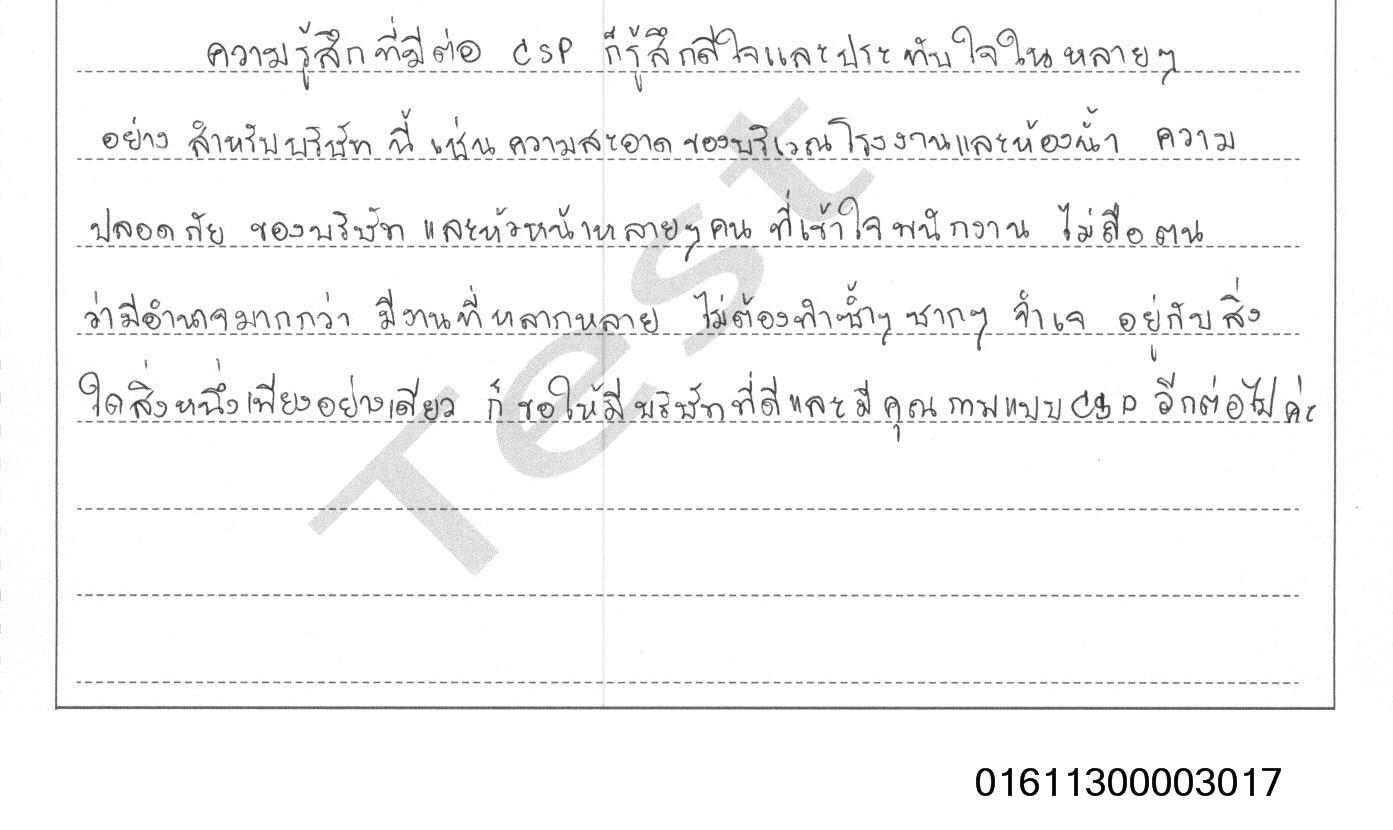 ความรู้สึกที่มีต่อ CSP ก็รู้สึกดีใจและประทับใจในหลายๆ
อย่าง สำหรับบริษัท นี้ เช่น ความสะอาด ของบริเวณโรงงานและห้องน้ำ ความ
ปลอดภัย ของบริษัท และหัวหน้าหลายๆ คน ที่เข้าใจพนักงาน ไม่ถือตน
ว่ามีอำนาจมากกว่า มีงานที่หลากหลาย ไม่ต้องทำซ้ำๆ ซากๆ จำเจ อยู่กับสิ่ง
ใดสิ่งหนึ่งเพียงอย่างเดียว ก็ ขอให้มีบริษัทที่ดีและมีคุณภาพแบบ CSP อีกต่อไปค่ะ
Test
01611300003017